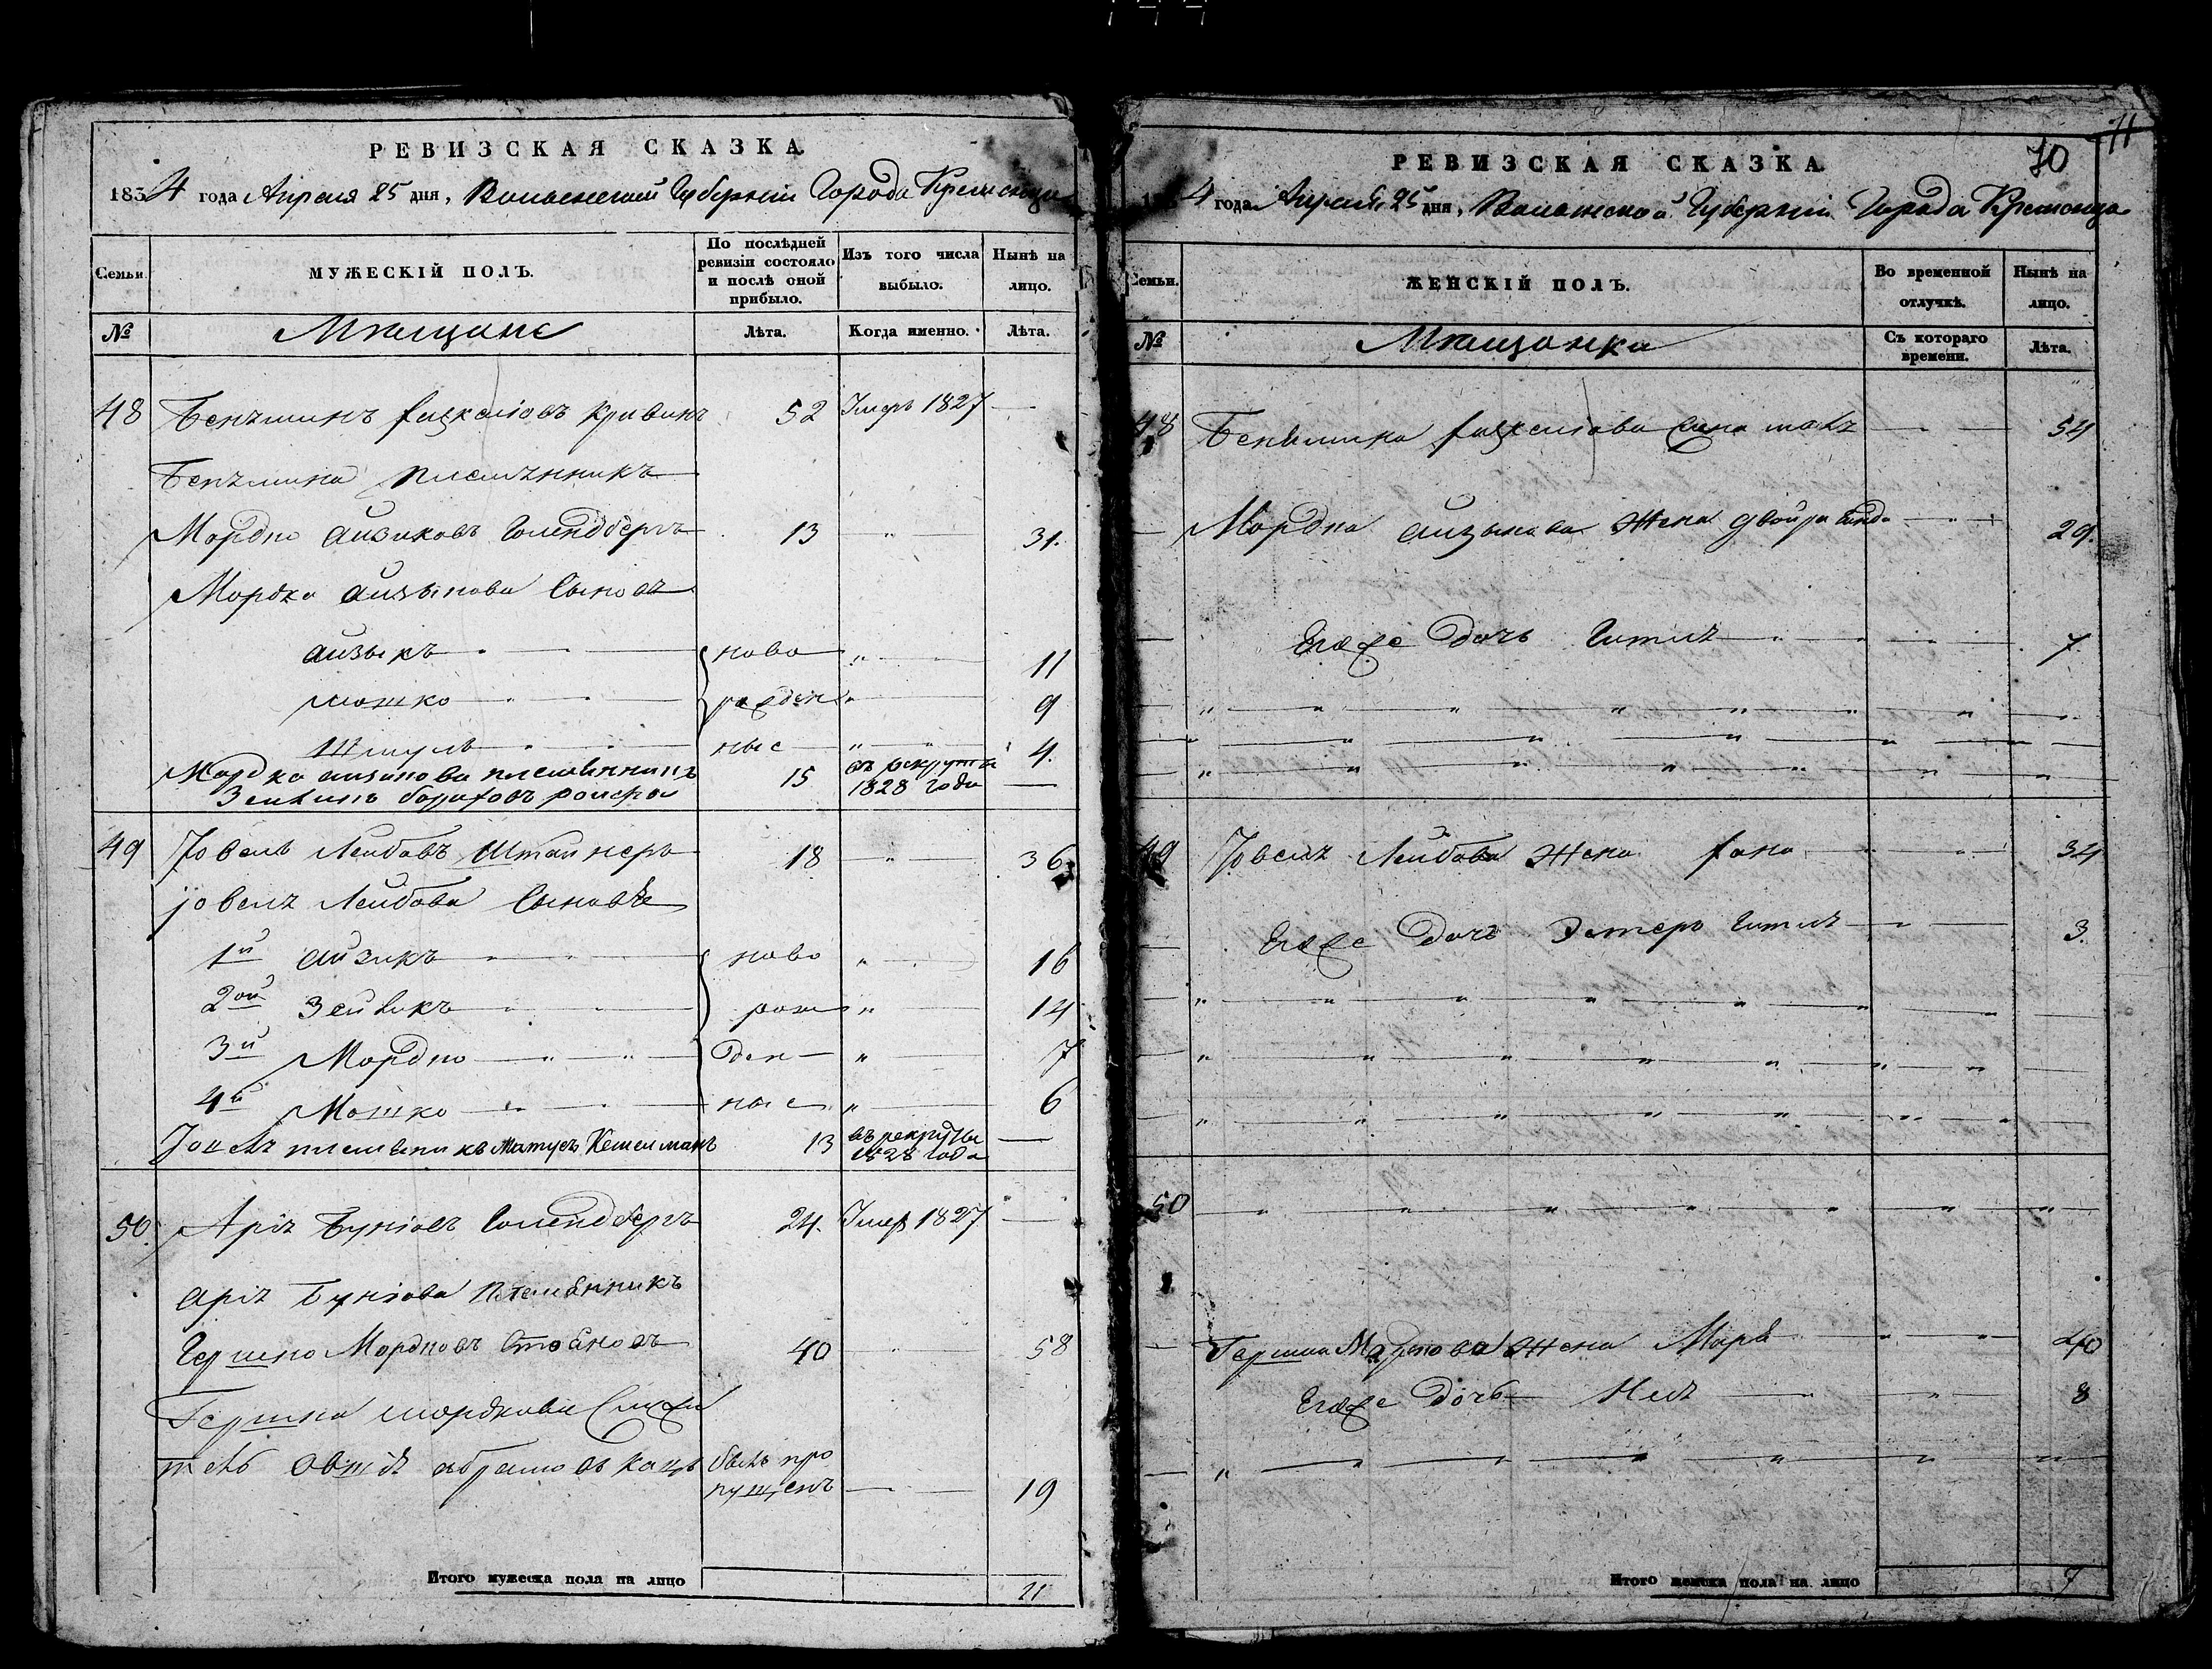 РЕВИЗСКАЯ СКАЗКА
1834 года Апреля 25 дня, Волынской Губернiи Города Кременца
Семьи.
МУЖЕСКIЙ ПОЛЪ.
По послѣдней ревизiи состояло и послѣ оной прибыло.
Изъ того числа выбыло.
Нынѣ на лицо.
№
Мѣщане
Лѣта.
Когда именно.
Лѣта.
48 Беньминъ Кривинъ 52 Умеръ 1827 —
Беньмина племянникъ
Мордко Айзиковъ Голендберъ 13 " — 31.
Мордка Айзыкова Сыновъ
Айзыкъ ново " 11
Мошко рожден " 9
Шмуль ные " 4.
Мордка Айзикова племянникъ 15 въ рекруты
1828 года —
49 Iовель Лейбовъ Штайнеръ 18 " — 36
iовелъ Лейбова Сыновѣ
1й Айзикъ ново " 16
2ой Зейвикъ рож " 14
3й Мордко ден " 7
4й Мошко ные " 6
племеникъ Матусъ Кешелманъ 13 въ рекруты
1828 года —
50. Арiъ Бунiовъ Голендберъ 24. Умер 1827 —
Арiъ Бунiова Племянникъ
Гершко Мордковъ 40 " — 58
Гершка Мордкова
былъ про
пущенъ — 19
Итого мужеска пола на лицо 11
70
71
РЕВИЗСКАЯ СКАЗКА
4 года Апреля 25 дня, Волынской Губернiи Города Кременца
Семьи.
ЖЕНСКIЙ ПОЛЪ.
Во временной отлучкѣ.
Нынѣ на лицо.
№
Мѣщанки
Съ котораго времени.
Лѣта.
48 Беньмина 54
— Мордка Айзыкова Жена Двойра 29.
— Егоже Дочь Гитлъ 7.
49 Iовелъ Лейбова Жена Хана 34
— Егоже Дочъ Эстеръ Гитлъ 3.
50
— Гершка Мордкова Жена 40
Егоже Дочь 8
Итого женска пола на лицо 7